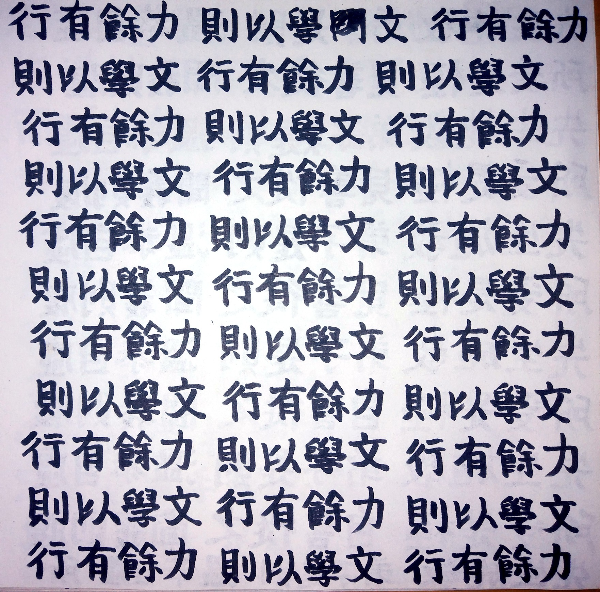 行有餘力 則以學文 行有餘力
則以學文 行有餘力 則以學文
行有餘力 則以學文 行有餘力
則以學文 行有餘力 則以學文
行有餘力 則以學文 行有餘力
則以學文 行有餘力 則以學文
行有餘力 則以學文 行有餘力
則以學文 行有餘力 則以學文
行有餘力 則以學文 行有餘力
則以學文 行有餘力 則以學文
行有餘力 則以學文 行有餘力